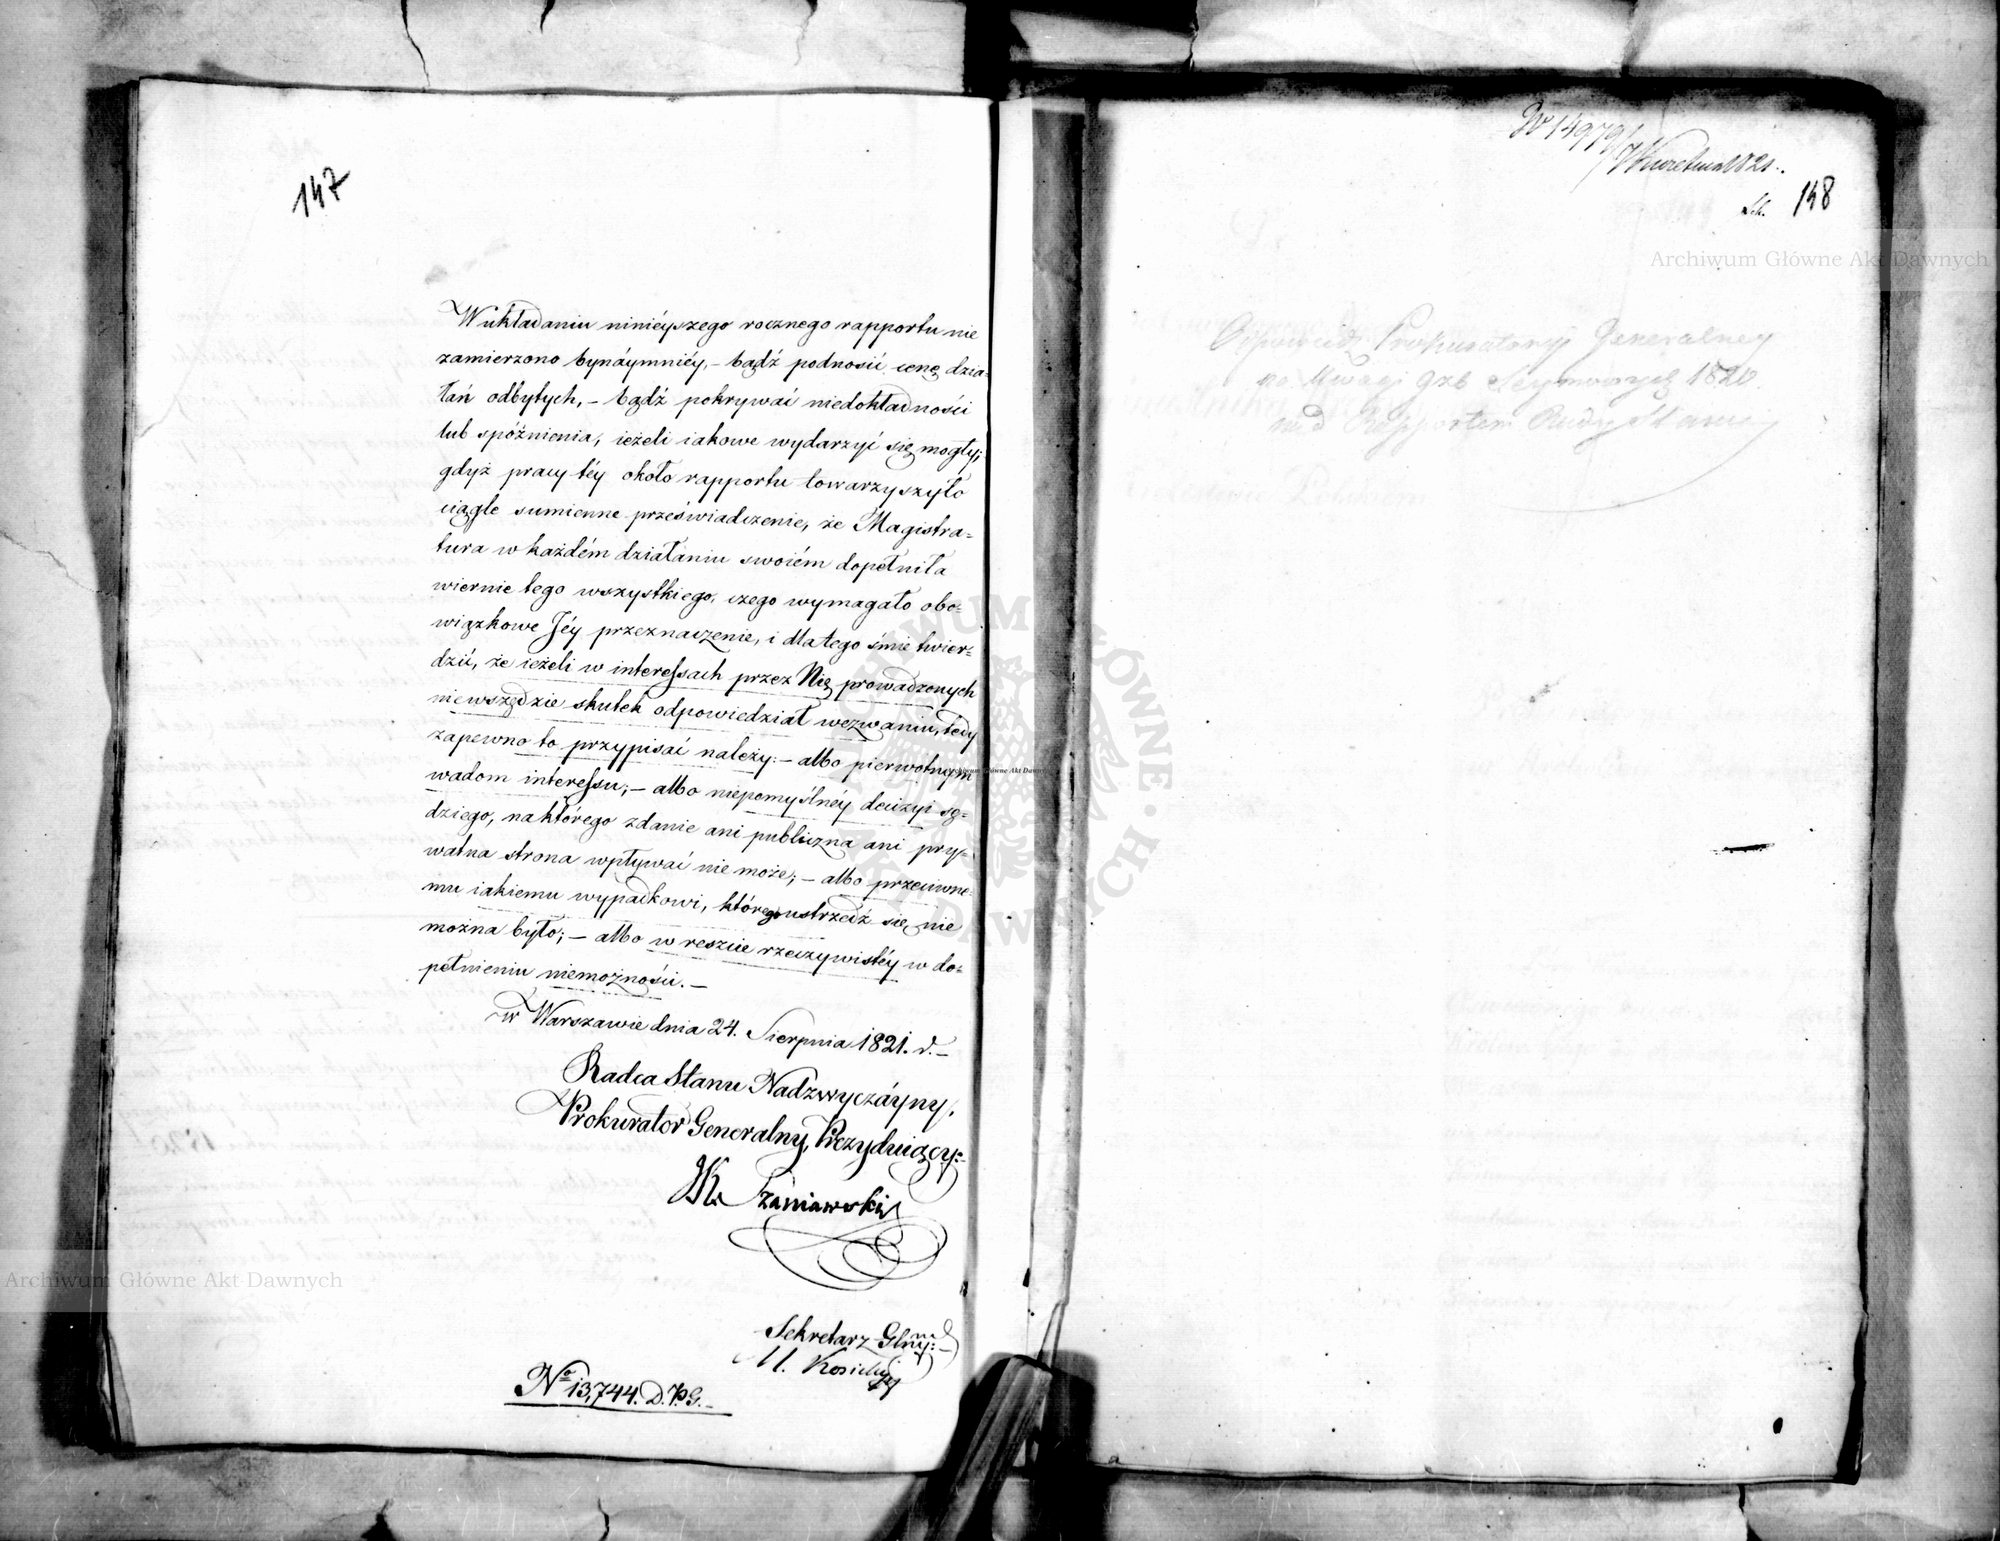 147
W układaniu ninieyszego rocznego rapportu nie
zamierzono bynáymniéy, – bądź podnosić cenę dzia-
łań odbytych, – bądź pokrywać niedokładności
lub spóźnienia, ieżeli iakowe wydarzyć się mogły;
gdyż pracy téy około rapportu towarzyszyło
ciągłe sumienne przeświadczenie, że Magistra-
tura w każdém działaniu swoiém dopełniła
wiernie tego wszystkiego, czego wymagało obo-
wiązkowe Jéy przeznaczenie, i dlatego śmie twier-
dzić, że ieżeli w interessach przez Nię prowadzonych
niewszędzie skutek odpowiedział wezwaniu, tedy
zapewno to przypisać należy: – albo pierwotnym
wadom interessu; – albo niepomyślnéy decizyi sę-
dziego, na którego zdanie ani publiczna ani pry-
watna strona wpływać nie może; – albo przeciwne-
mu iakiemu wypadkowi, którego ustrzedz się nie
można było; – albo w reszcie rzeczywistéy w do-
pełnieniu niemożności. –
w Warszawie dnia 24. Sierpnia 1821. r. –
Radca Stanu Nadzwyczáyny,
Prokurator Generalny, Prezyduiący:
JK Szaniawski
Sekretarz Glny:
M. Kosicki
No 13,744. D.P.G. –
No 14979
1821.
148
Odpowiedź Prokuratoryi Generalney
na Uwagi Izb Seymowych 1820.
nad Rapportem Rady Stanu
Archiwum Główne Akt Dawnych
Archiwum Główne Akt Dawnych
Archiwum Główne Akt Dawnych
ARCHIWUM GŁÓWNE AKT DAWNYCH